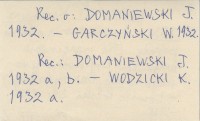 Rec. o: DOMANIEWSKI J.
1932. – GARCZYŃSKI W. 1932.
Rec.: DOMANIEWSKI J.
1932 a, b. – WODZICKI K.
1932 a.